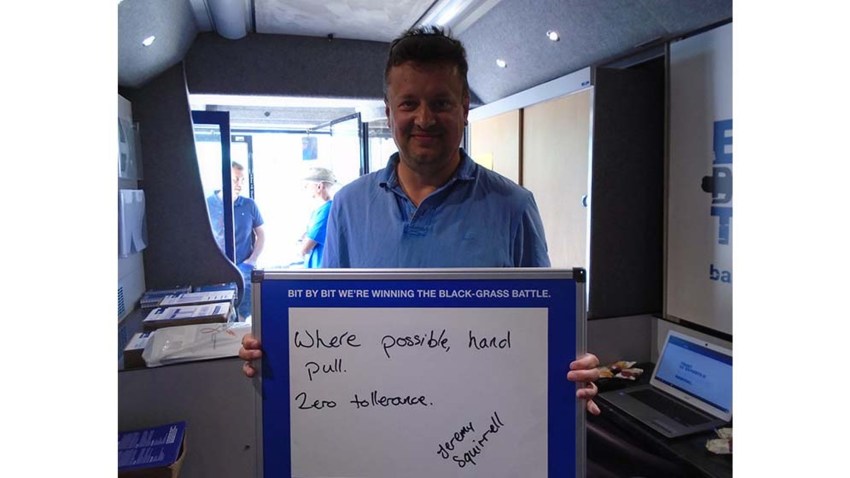 BIT BY BIT WE'RE WINNING THE BLACK-GRASS BATTLE.
Where possible, hand
pull.
Zero tollerance.
Jeremy
Squirrell